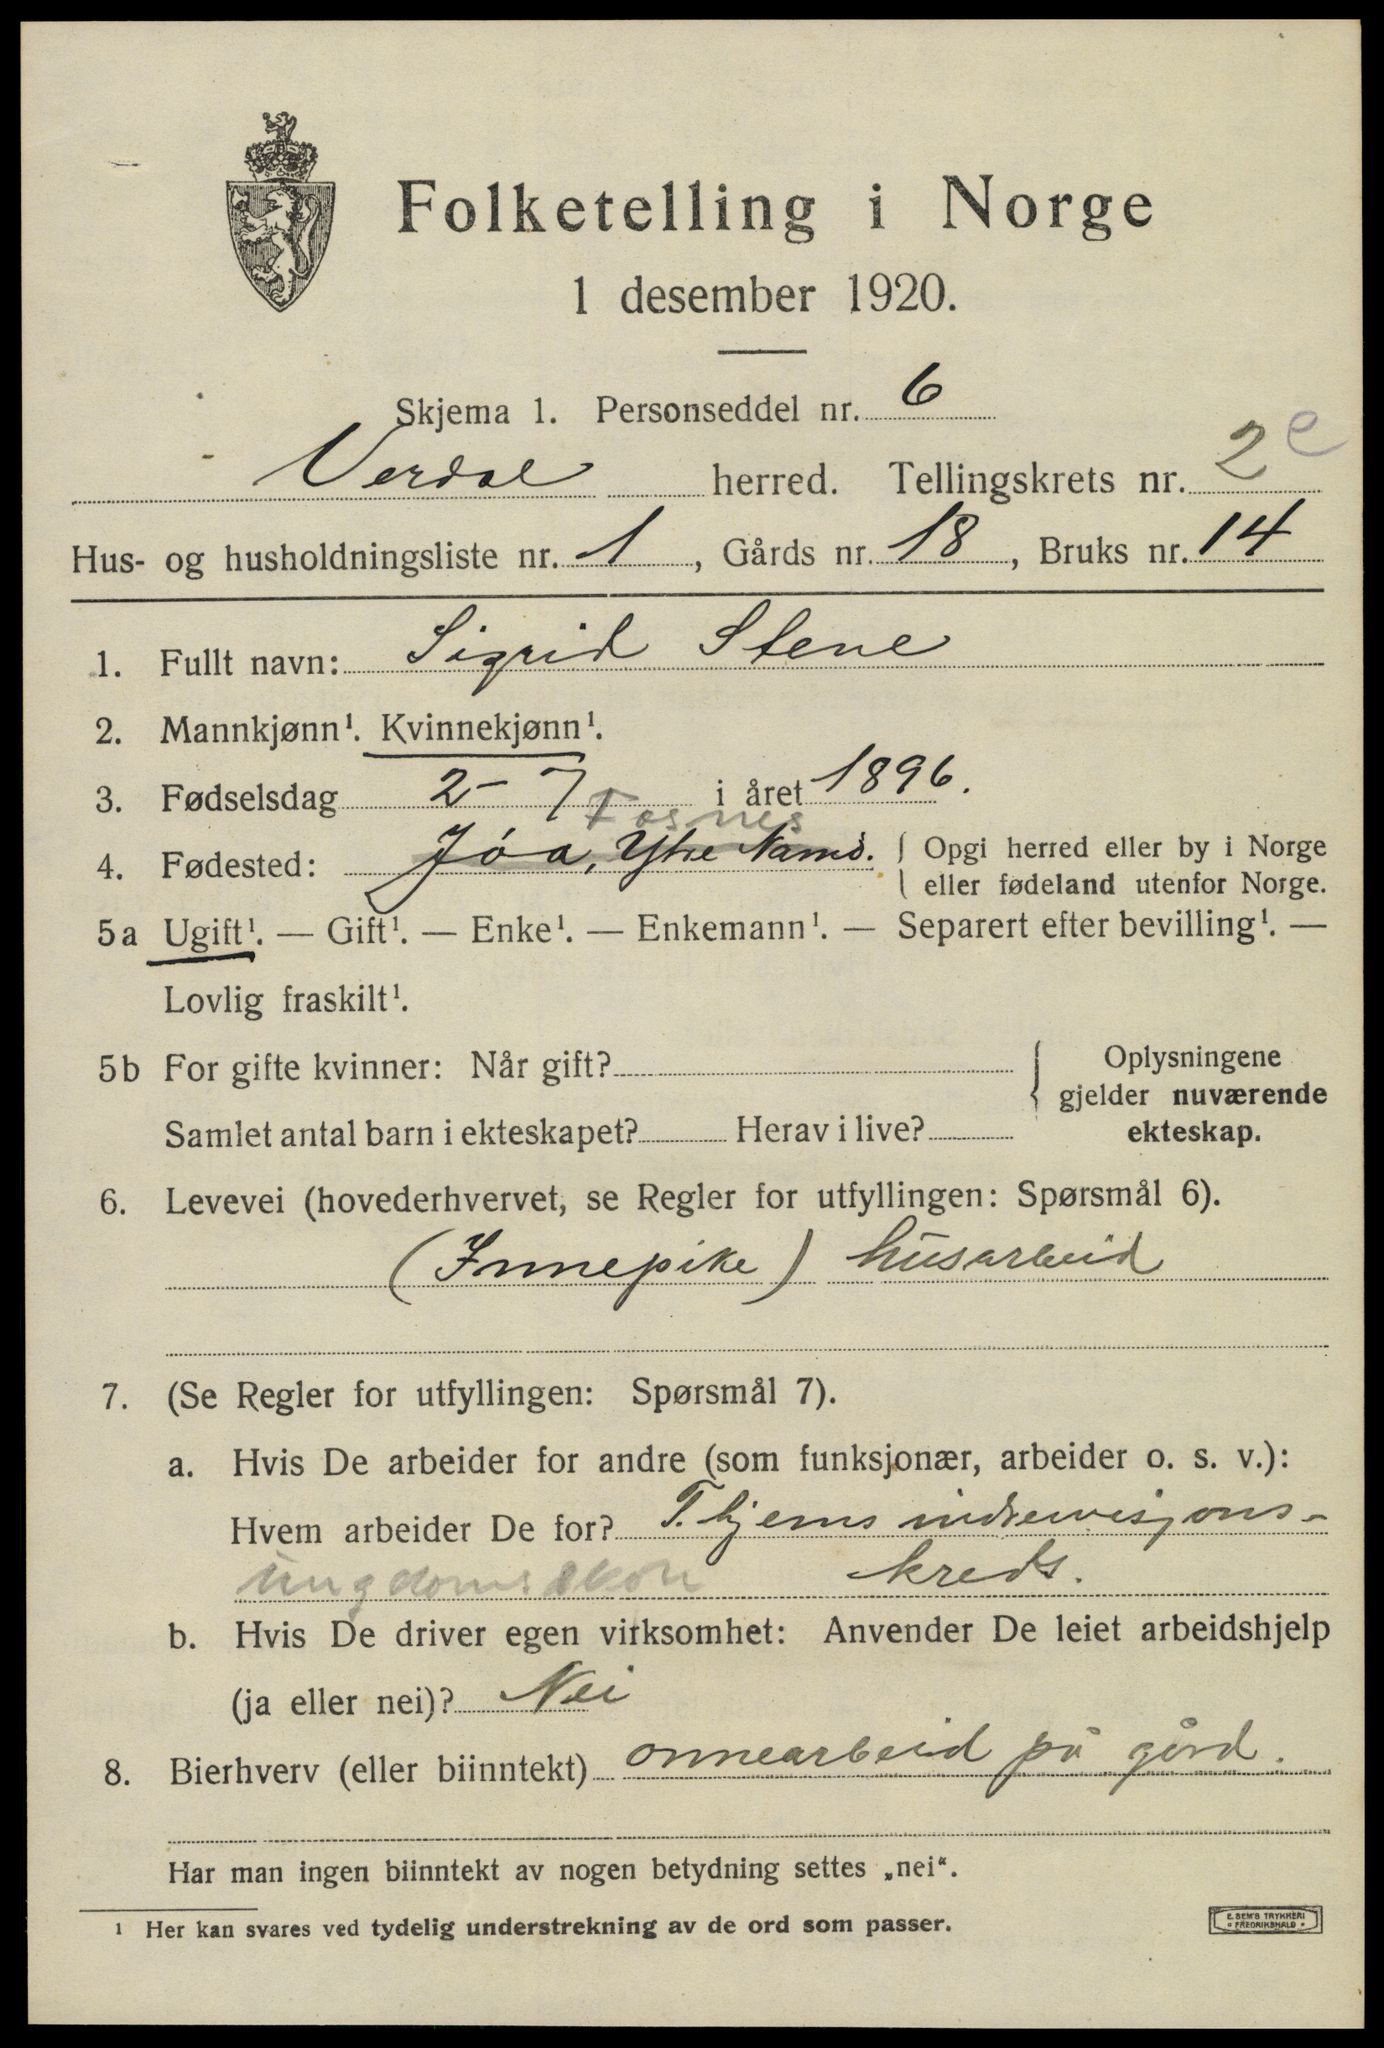 Folketelling i Norge
1 desember 1920.
Skjema 1. Personseddel nr. 6
Verdal herred. Tellingskrets nr. 2 e
Hus- og husholdningsliste nr. 1, Gårds nr. 18, Bruks nr. 14
1. Fullt navn: Sigrid Stene
2. Mannkjønn¹. Kvinnekjønn¹.
3. Fødselsdag 2-7 i året 1896.
Fosnes
4. Fødested: Jøa, Ytre Namd. { Opgi herred eller by i Norge
eller fødeland utenfor Norge.
5a Ugift¹. — Gift¹. — Enke¹. — Enkemann¹. — Separert efter bevilling¹. —
Lovlig fraskilt¹.
5b For gifte kvinner: Når gift?
Samlet antal barn i ekteskapet? Herav i live?
{ Oplysningene
gjelder nuværende
ekteskap.
6. Levevei (hovederhvervet, se Regler for utfyllingen: Spørsmål 6).
(Innepike) husarbeid
7. (Se Regler for utfyllingen: Spørsmål 7).
a. Hvis De arbeider for andre (som funksjonær, arbeider o. s. v.):
Hvem arbeider De for? T. hjems indremisjons-
ungdomsskole kreds.
b. Hvis De driver egen virksomhet: Anvender De leiet arbeidshjelp
(ja eller nei)? Nei
8. Bierhverv (eller biinntekt) onnearbeid på gård.
Har man ingen biinntekt av nogen betydning settes „nei“.
¹ Her kan svares ved tydelig understrekning av de ord som passer.
E. SEM'S TRYKKERI
* FREDRIKSHALD *